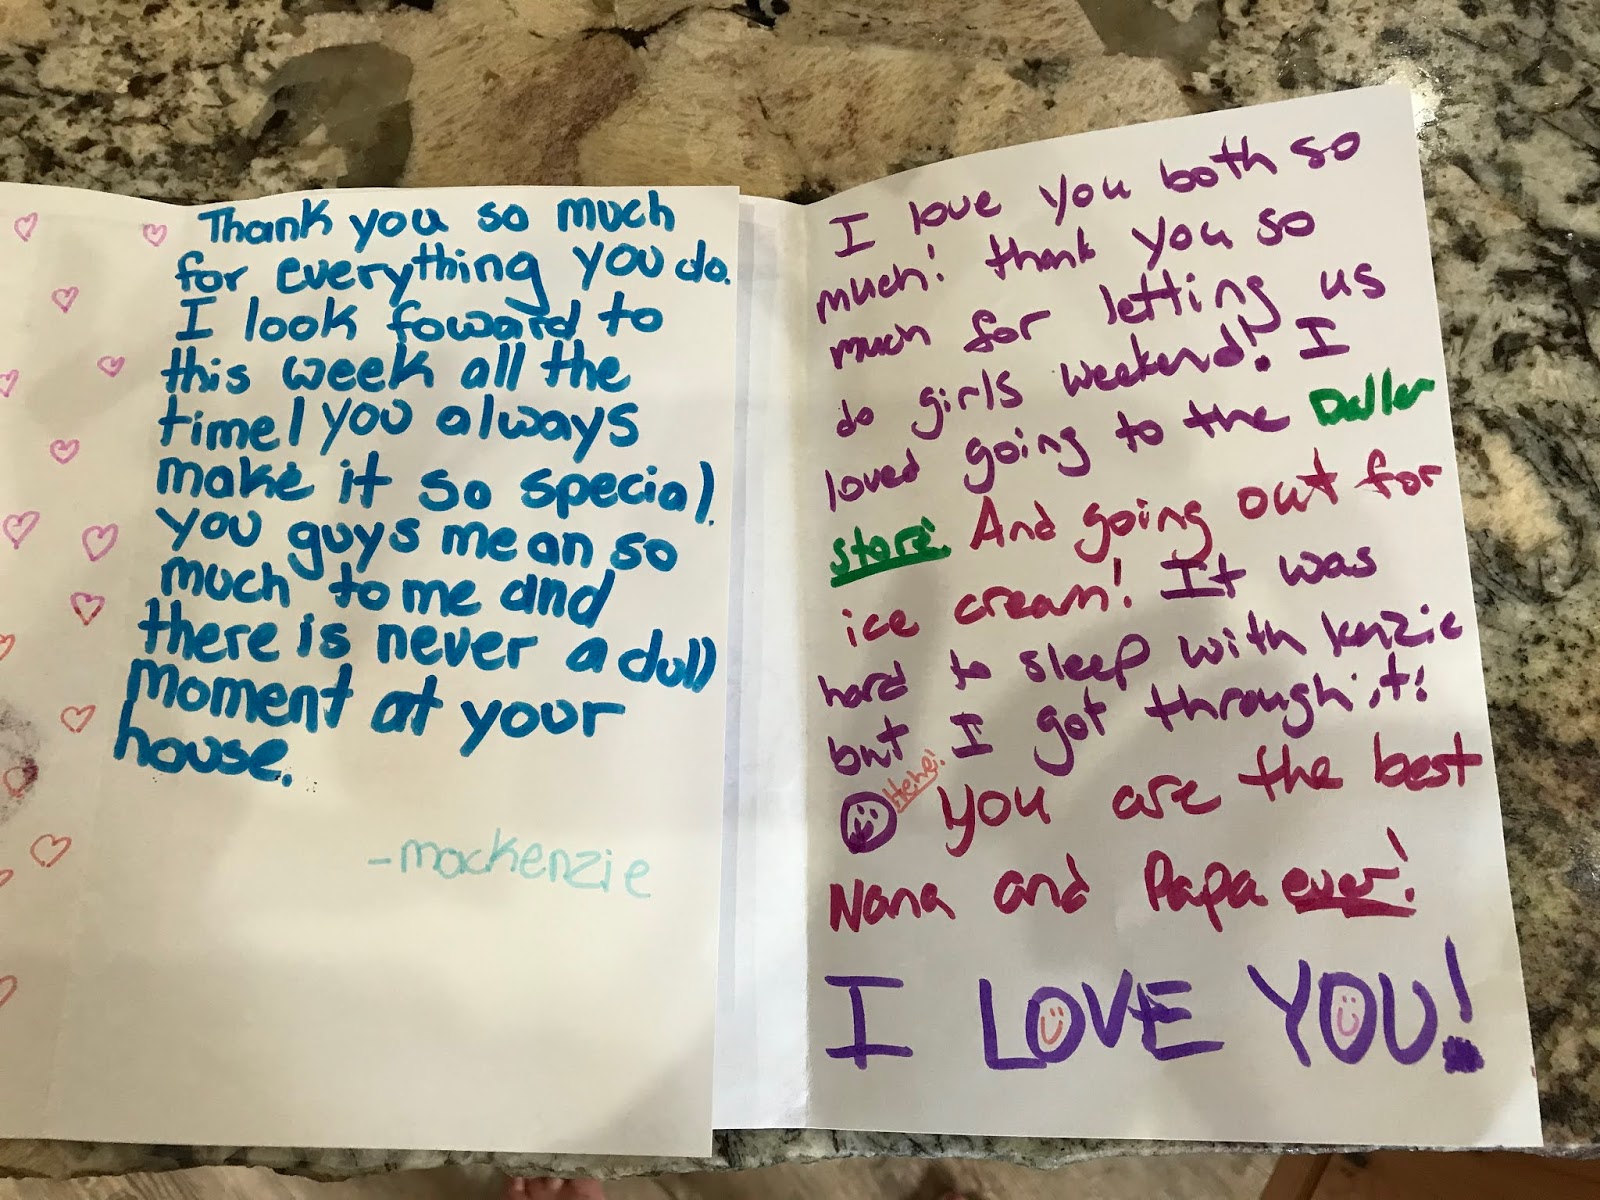 Thank you so much
for everything you do.
I look foward to
this week all the
time! you always
make it so special.
you guys mean so
much to me and
there is never a dull
moment at your
house.
-mackenzie
I love you both so
much! thank you so
much for letting us
do girls weekend! I
loved going to the Doller
store. And going out for
ice cream! It was
hard to sleep with kenzie
but I got through it!
Hehe! you are the best
Nana and Papa ever!
I LOVE YOU!